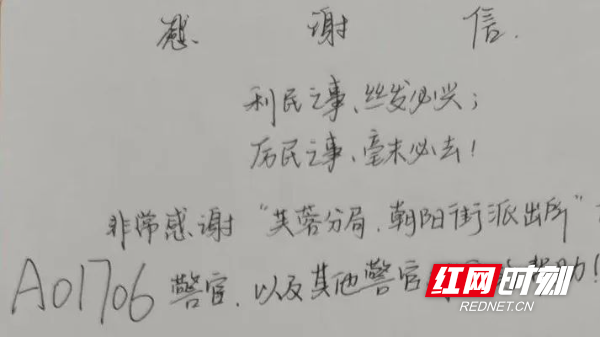 感谢信.
利民之事、丝发必兴;
厉民之事、毫末必去!
非常感谢“芙蓉分局.朝阳街派出所”
A01706 警官.以及其他警官助!
红网时刻
REDNET.CN